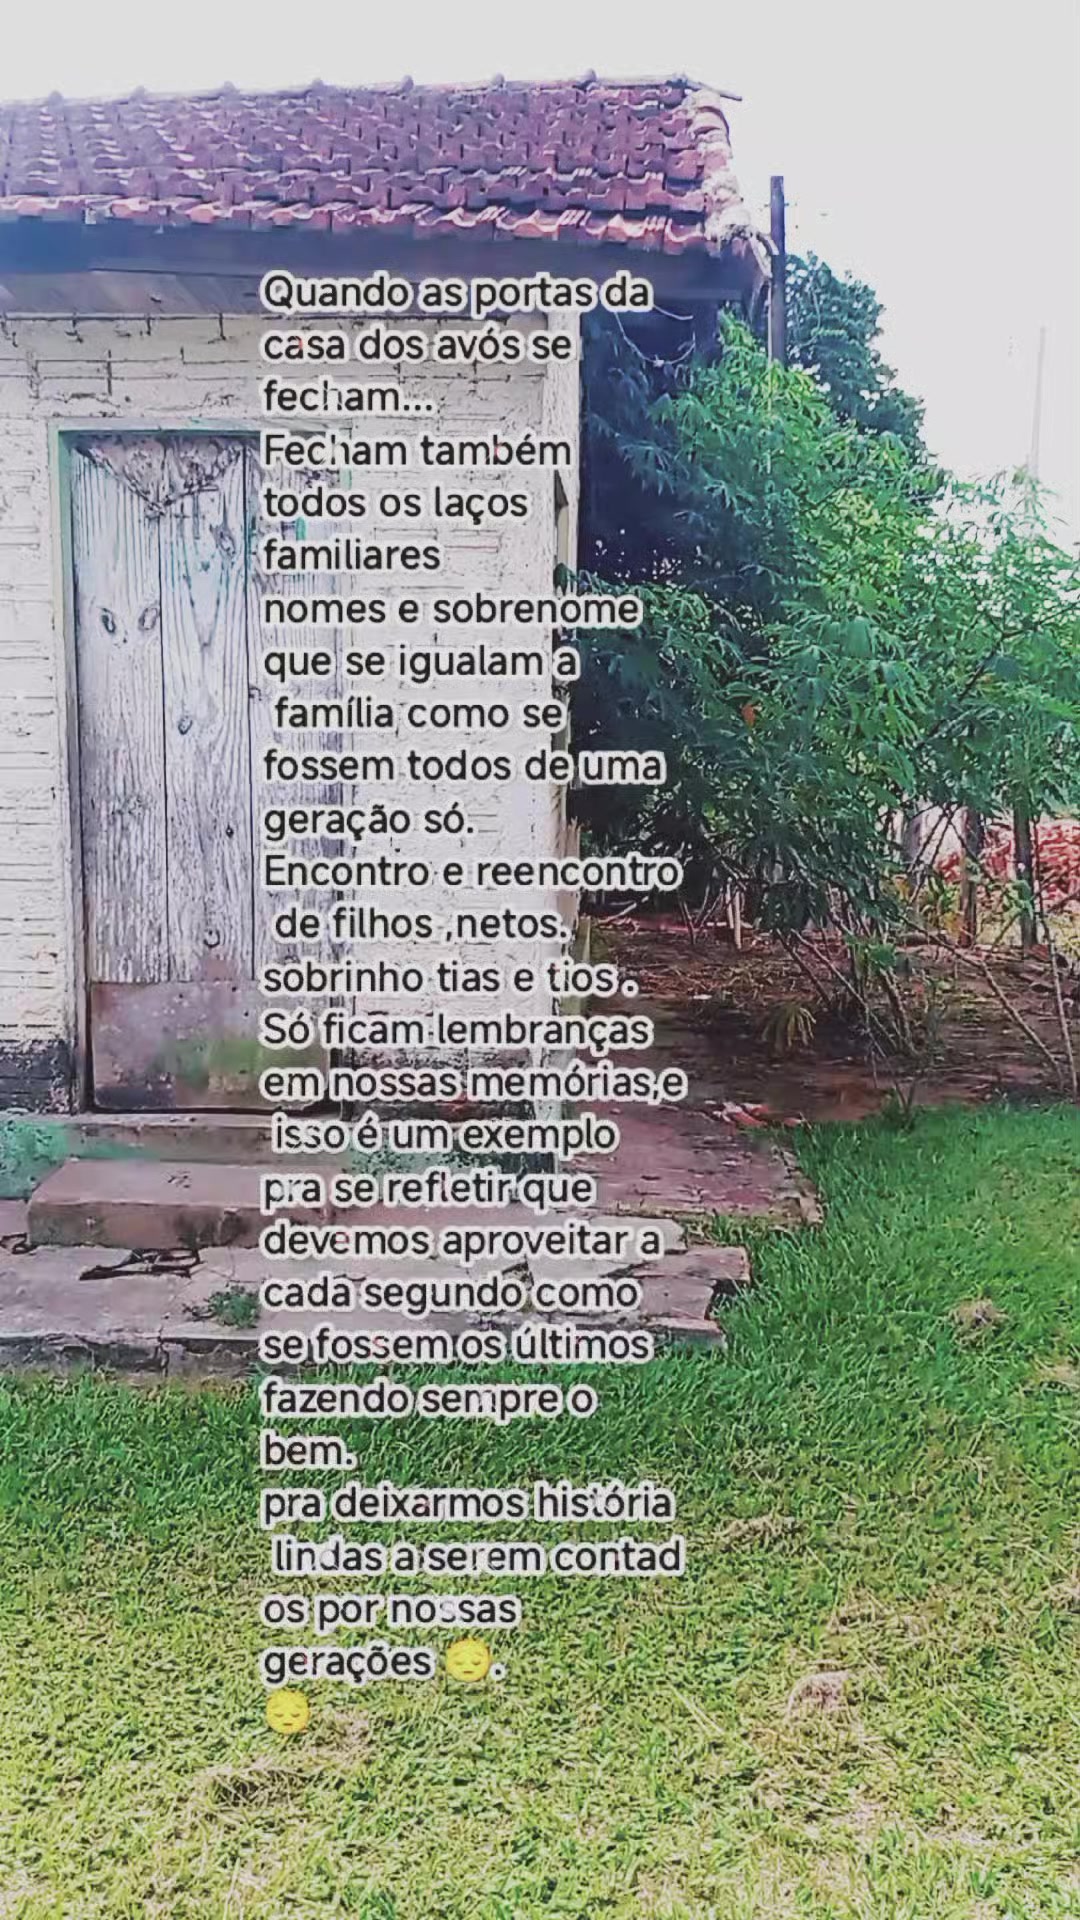 Quando as portas da
casa dos avós se
fecham...
Fecham também
todos os laços
familiares
nomes e sobrenome
que se igualam a
família como se
fossem todos de uma
geração só.
Encontro e reencontro
de filhos ,netos.
sobrinho tias e tios .
Só ficam lembranças
em nossas memórias,e
isso é um exemplo
pra se refletir que
devemos aproveitar a
cada segundo como
se fossem os últimos
fazendo sempre o
bem.
pra deixarmos história
lindas a serem contad
os por nossas
gerações 😔.
😔